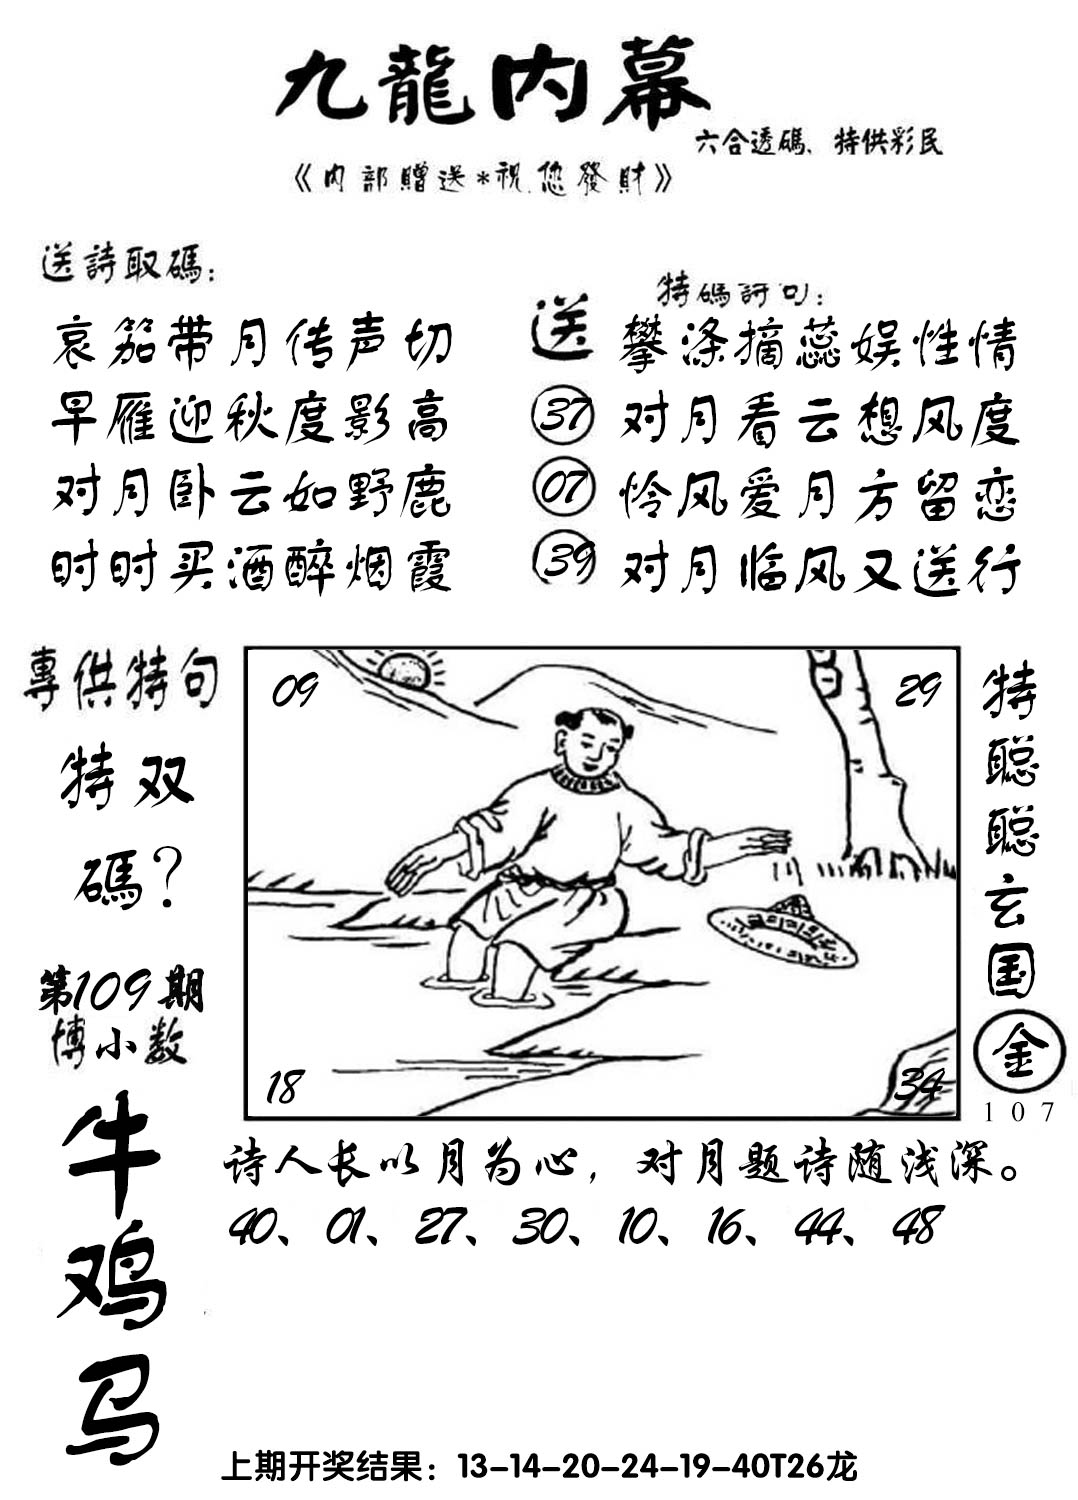 九龍内幕
六合透碼、特供彩民
《内部贈送*祝您發財》
送詩取碼：
哀笳带月传声切
早雁迎秋度影高
对月卧云如野鹿
时时买酒醉烟霞
送
37
07
39
特碼詩句：
攀涤摘蕊娱性情
对月看云想风度
怜风爱月方留恋
对月临风又送行
專供特句
特双
碼？
第109期
博小数
牛
鸡
马
09
29
18
34
特
聪
聪
玄
国
金
107
诗人长以月为心，对月题诗随浅深。
40、01、27、30、10、16、44、48
上期开奖结果：13-14-20-24-19-40T26龙